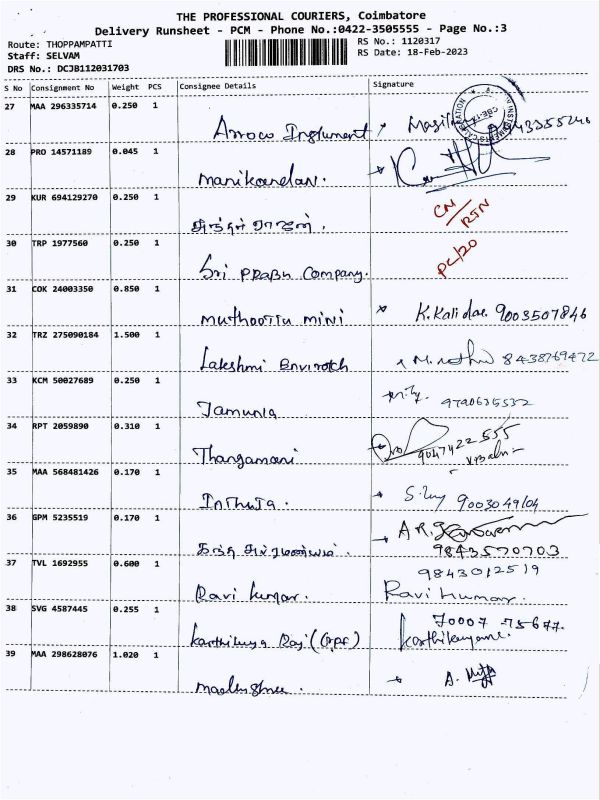 THE PROFESSIONAL COURIERS, Coimbatore
Delivery Runsheet - PCM - Phone No.:0422-3505555 - Page No.:3
Route: THOPPAMPATTI
RS No.: 1120317
Staff: SELVAM
RS Date: 18-Feb-2023
DRS No.: DCJB112031703
S No Consignment No Weight PCS Consignee Details Signature
27 MAA 296335714 0.250 1
28 PRO 14571189 0.045 1
Manikandan.
29 KUR 694129270 0.250 1
CN/RTN
30 TRP 1977560 0.250 1
PC/20
Sri PRABU Company.
31 COK 24003350 0.850 1
Muthoottu mini K.Kalidas. 9003507846
32 TRZ 275090184 1.500 1
Lakshmi 8438769472
33 KCM 50027689 0.250 1
Jamuna 9790635532
34 RPT 2059890 0.310 1
9047422555
Thangamani
35 MAA 568481426 0.170 1
9003049104
36 GPM 5235519 0.170 1
9843570703
37 TVL 1692955 0.600 1
9843012519
Ravi kumar. Ravi kumar.
38 SVG 4587445 0.255 1
70007 75677.
39 MAA 298628076 1.020 1